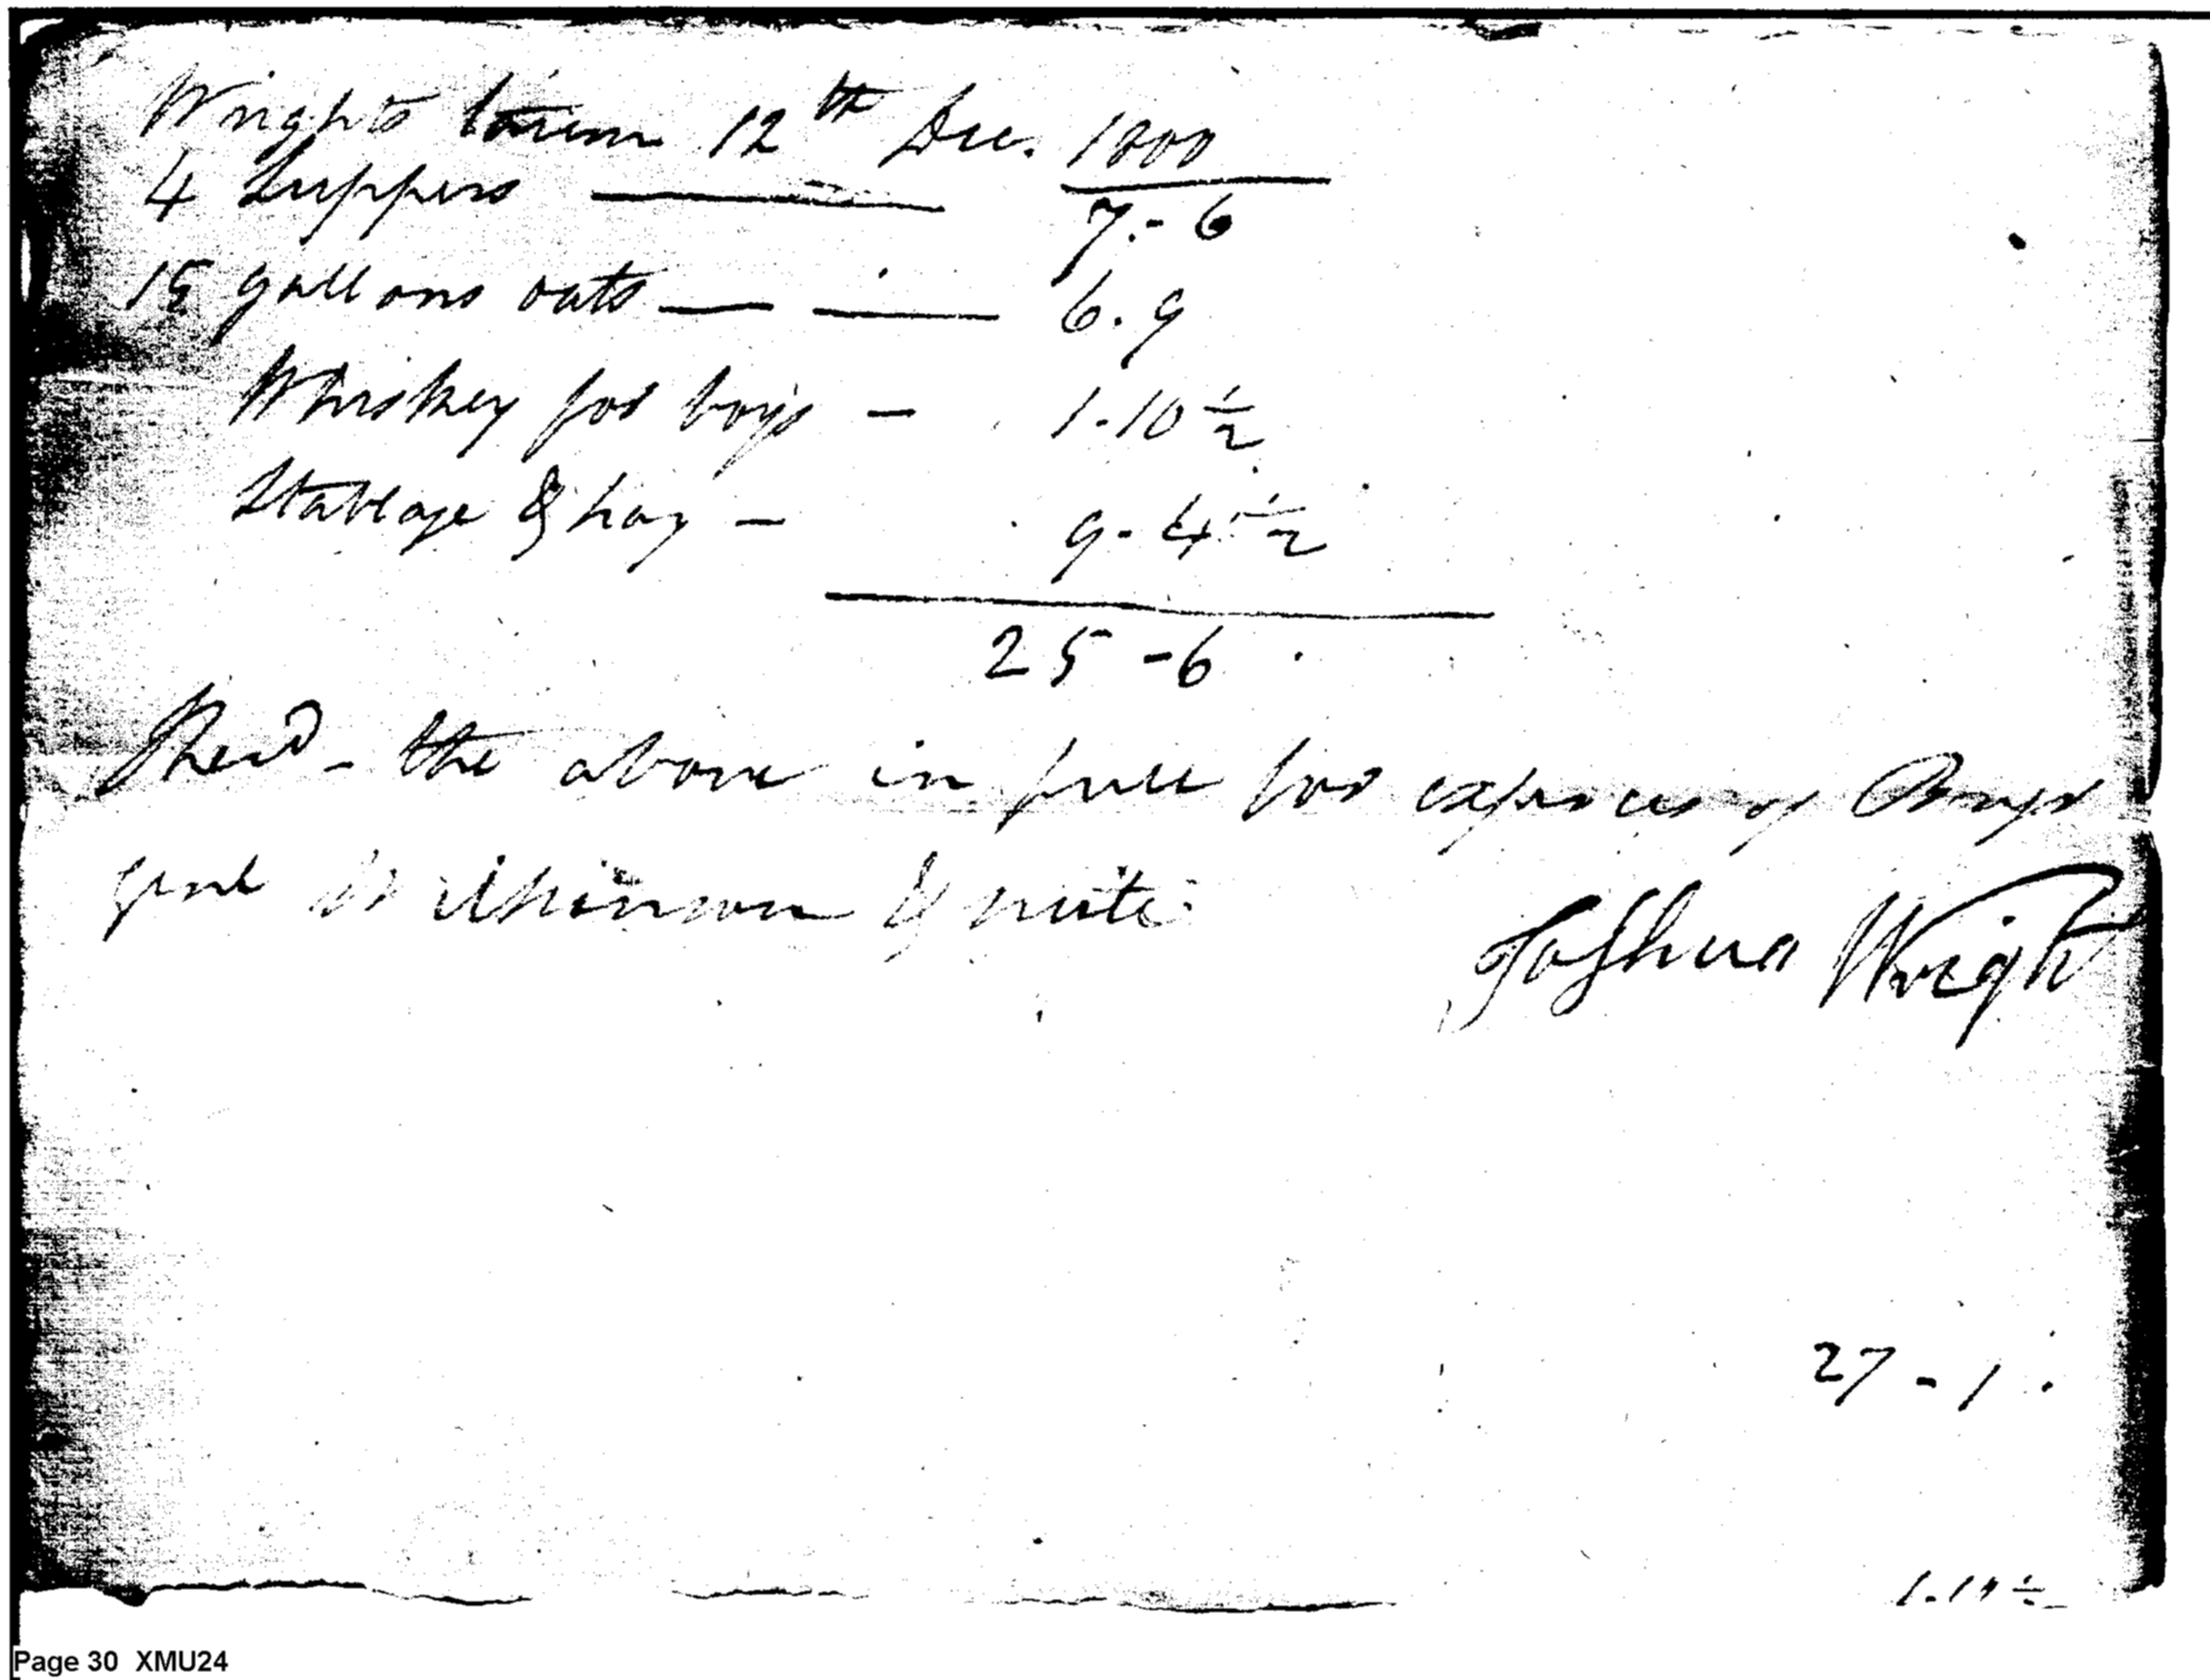 Wrights tavern 12th Dec. 1800
4 Suppers 7.-6
15 gallons oats 6.9
Whiskey for boys - 1.10 1/2
Stablage & hay - 9.4 1/2
25-6
Recd - the above in full for expences of
Genl Wilkinson & suite
Joshua Wright
27-1.
1.10 1/2
Page 30 XMU24